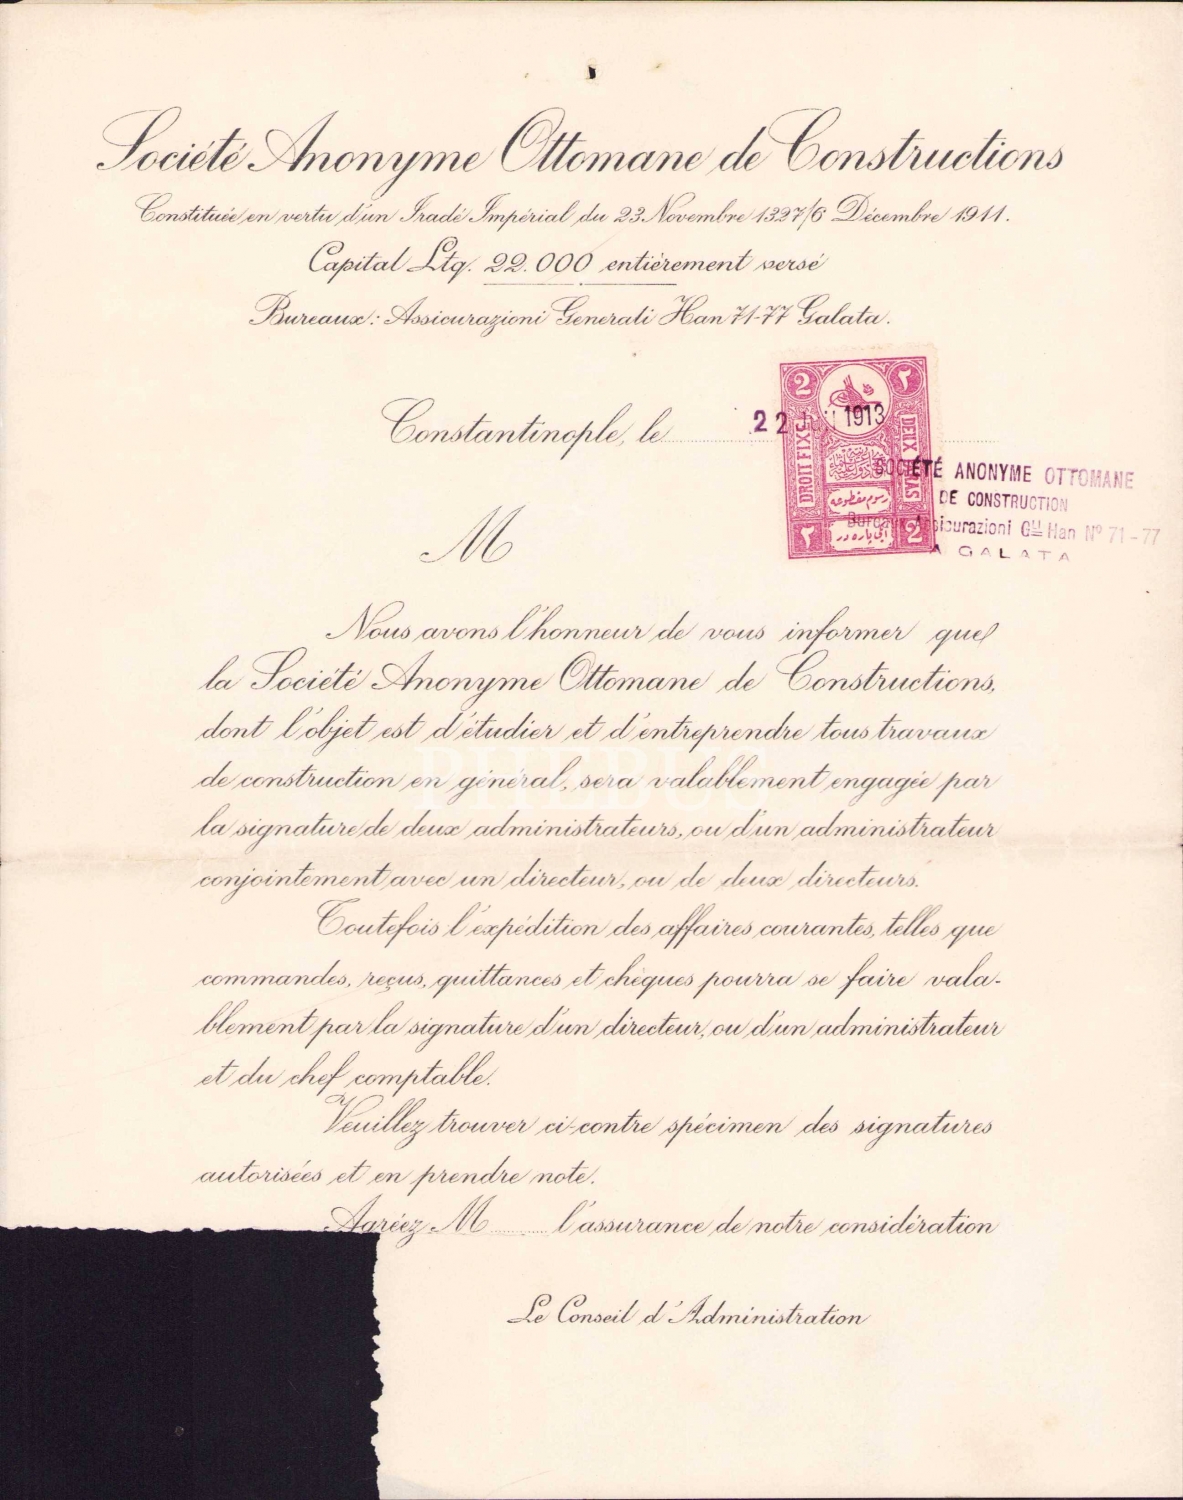 Société Anonyme Ottomane de Constructions
Constituée en vertu d'un Iradé Impérial du 23 Novembre 1327/6 Décembre 1911.
Capital Ltq. 22.000 entièrement versé
Bureaux: Assicurazioni Generali Han 71-77 Galata.
Constantinople, le
22 1913
2 ٢
DROIT FIXE
DEUX PARAS
رسوم مقطوعه
ايكى پاره در
٢ 2
SOCIÉTÉ ANONYME OTTOMANE
DE CONSTRUCTION
Bureaux Assicurazioni Gli Han Nº 71-77
A GALATA
M
Nous avons l'honneur de vous informer que
la Société Anonyme Ottomane de Constructions,
dont l'objet est d'étudier et d'entreprendre tous travaux
de construction en général, sera valablement engagée par
la signature de deux administrateurs, ou d'un administrateur
conjointement avec un directeur, ou de deux directeurs.
Toutefois l'expédition des affaires courantes, telles que
commandes, reçus, quittances et chèques pourra se faire vala-
blement par la signature d'un directeur, ou d'un administrateur
et du chef comptable.
Veuillez trouver ci-contre spécimen des signatures
autorisées et en prendre note.
Agréez M l'assurance de notre considération
Le Conseil d'Administration
PHEBUS